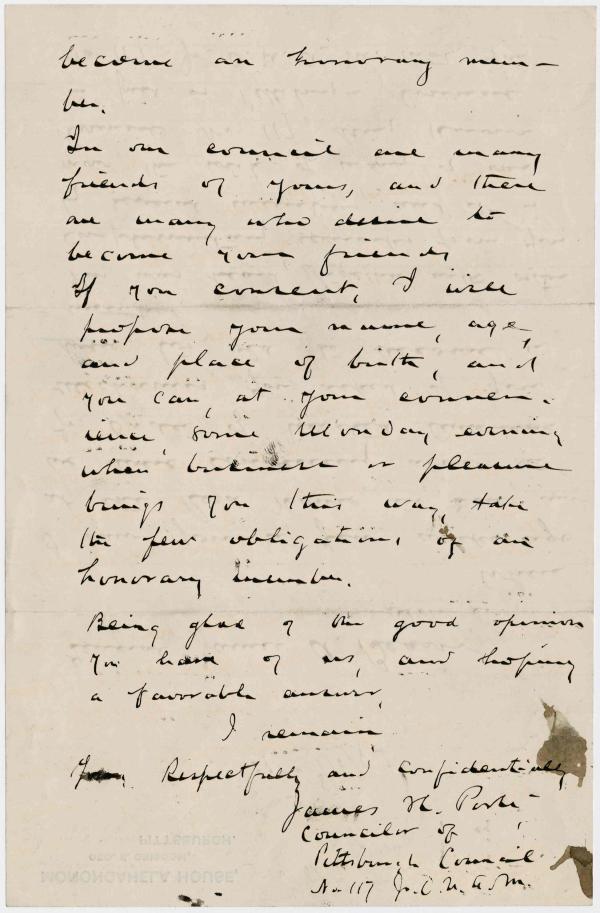 become an honorary mem-
ber.
In our council are many
friends of yours, and there
are many who desire to
become your friends
If you consent, I will
propose your name, age,
and place of birth, and
you can, at your conven-
ience, some Monday evening
when business or pleasure
brings you this way, take
the few obligations of an
honorary member.
Being glad of the good opinion
you have of us, and hoping
a favorable answer,
I remain
Respectfully and confidentially,
James H. Porte
Councilor of
Pittsburgh Council
No 117 Jr. O. U. A. M.
PITTSBURGH.
MONONGAHELA HOUSE,